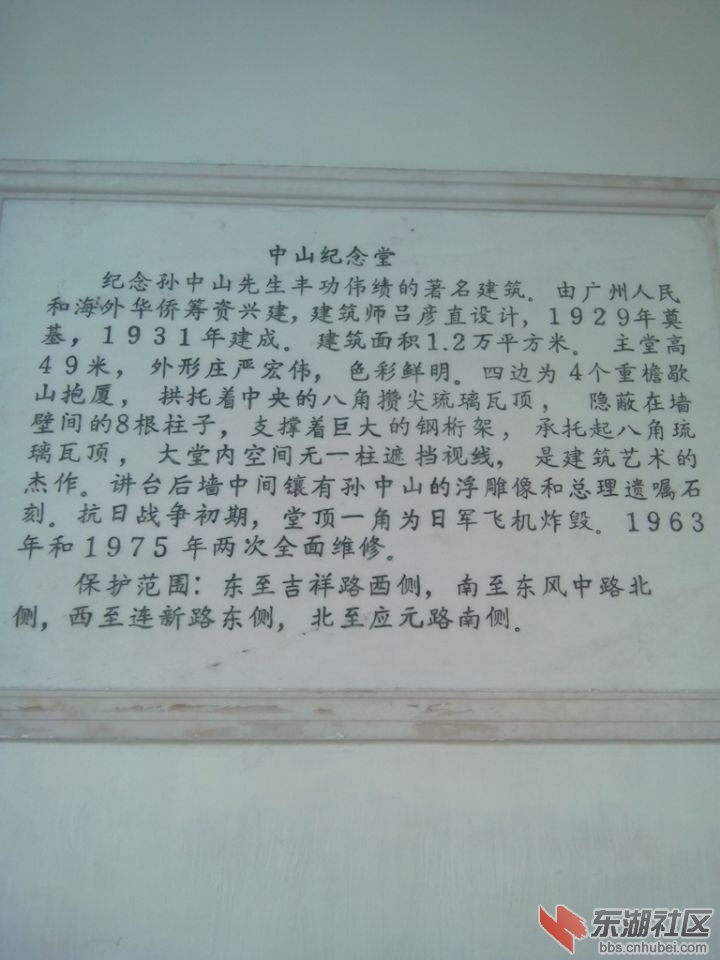 中山纪念堂
纪念孙中山先生丰功伟绩的著名建筑。由广州人民
和海外华侨筹资兴建，建筑师吕彦直设计，1929年奠
基，1931年建成。 建筑面积1.2万平方米。 主堂高
49米， 外形庄严宏伟， 色彩鲜明。四边为4个重檐歇
山抱厦， 拱托着中央的八角攒尖琉璃瓦顶， 隐蔽在墙
壁间的8根柱子，支撑着巨大的钢桁架，承托起八角琉
璃瓦顶， 大堂内空间无一柱遮挡视线， 是建筑艺术的
杰作。讲台后墙中间镶有孙中山的浮雕像和总理遗嘱石
刻。抗日战争初期，堂顶一角为日军飞机炸毁。1963
年和1975年两次全面维修。
保护范围：东至吉祥路西侧，南至东风中路北
侧，西至连新路东侧，北至应元路南侧。
东湖社区
bbs.cnhubei.com